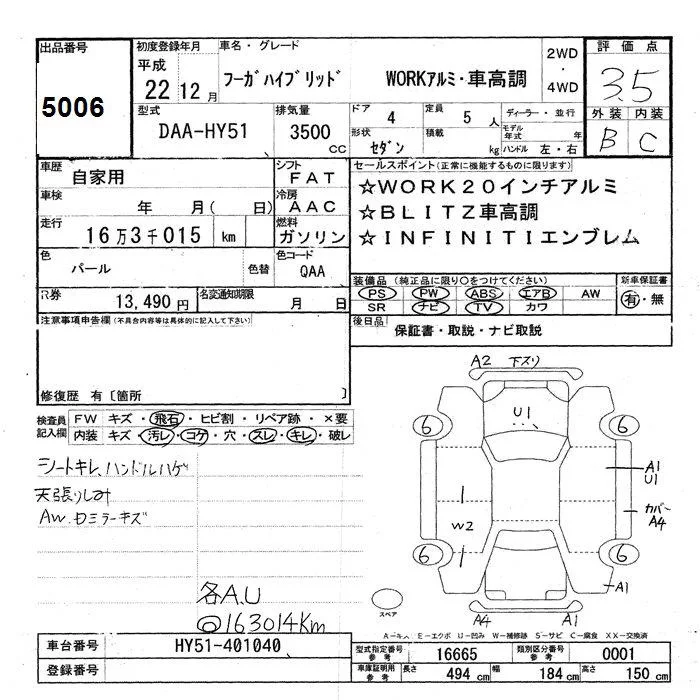 出品番号 5006
初度登録年月 平成 22 12月
車名・グレード フーガハイブリッド WORKアルミ・車高調
2WD・4WD
評価点 3.5
外装 B 内装 C
型式 DAA-HY51
排気量 3500 CC
ドア 4 定員 5 人 ディーラー・並行
形状 セダン 積載 kg モデル年式 年 ハンドル 左・右
車歴 自家用
シフト FAT
車検 年 月( 日)
冷房 AAC
走行 16万3千015 km
燃料 ガソリン
色 パール 色替
色コード QAA
R券 13,490円 名変通知期限 月 日
セールスポイント(正常に機能するものに限ります)
☆WORK20インチアルミ
☆BLITZ車高調
☆INFINITIエンブレム
装備品(純正品に限り○をつけてください) 新車保証書
PS PW ABS エアB AW 有・無
SR ナビ TV カワ
後日品 保証書・取説・ナビ取説
注意事項申告欄(不具合内容等は具体的に記入して下さい)
修復歴 有〔箇所 〕
検査員記入欄
FW キズ・飛石・ヒビ割・リペア跡・×要
内装 キズ・汚レ・コゲ・穴・スレ・キレ・破レ
シートキレ、ハンドルハゲ
天張りしみ
AW.ロミラーキズ
各A.U
@163014Km
A2 下スリ
U1
6 6
A1
U1
カバー
A4
W2
6 6
A1
スペア
A4 A1
A-キズ E-エクボ U-凹み W-補修跡 S-サビ C-腐食 XX-交換済
車台番号 HY51-401040
登録番号
型式指定番号 参考 16665 類別区分番号 参考 0001
車庫証明用 参考 長さ 494 cm 幅 184 cm 高さ 150 cm